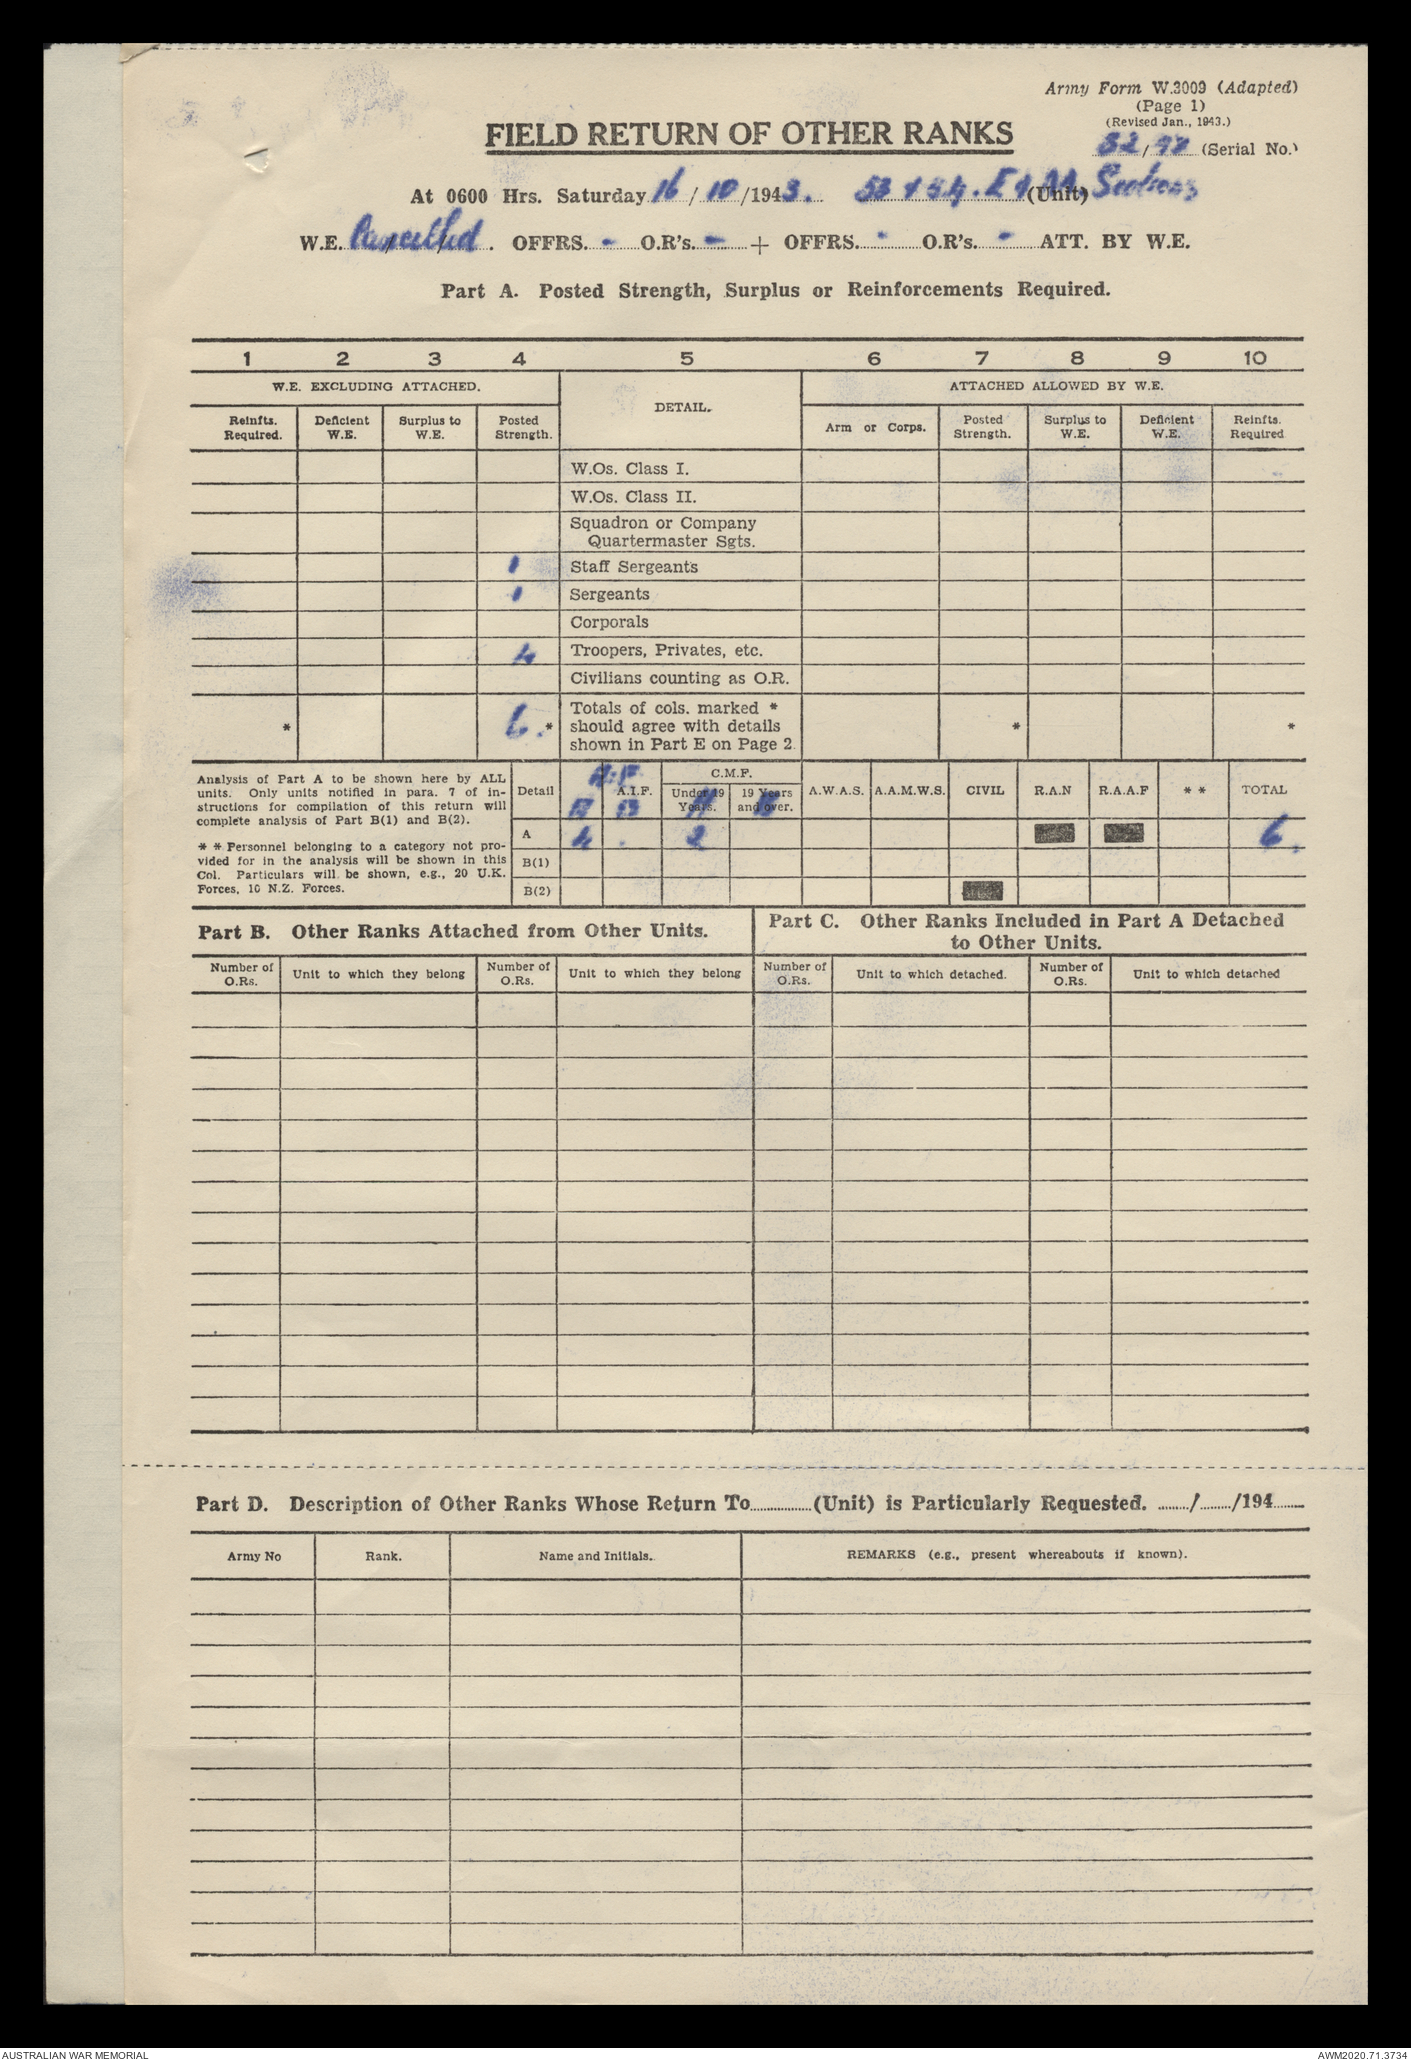 Army Form W.3009 (Adapted)
(Page 1)
(Revised Jan., 1943.)
FIELD RETURN OF OTHER RANKS
52/ (Serial No.)
At 0600 Hrs. Saturday 16/10/1943. 53 & 54. (Unit) Sections
W.E. Cancelled. OFFRS. - O.R's. - + OFFRS. - O.R's. - ATT. BY W.E.
Part A. Posted Strength, Surplus or Reinforcements Required.
1 2 3 4 5 6 7 8 9 10
W.E. EXCLUDING ATTACHED. DETAIL. ATTACHED ALLOWED BY W.E.
Reinfts. Required. Deficient W.E. Surplus to W.E. Posted Strength. Arm or Corps. Posted Strength. Surplus to W.E. Deficient W.E. Reinfts. Required
W.Os. Class I.
W.Os. Class II.
Squadron or Company
Quartermaster Sgts.
1 Staff Sergeants
1 Sergeants
Corporals
4 Troopers, Privates, etc.
Civilians counting as O.R.
Totals of cols. marked *
* 6.* should agree with details * *
shown in Part E on Page 2.
Analysis of Part A to be shown here by ALL
units. Only units notified in para. 7 of in-
structions for compilation of this return will
complete analysis of Part B(1) and B(2).
* * Personnel belonging to a category not pro-
vided for in the analysis will be shown in this
Col. Particulars will be shown, e.g., 20 U.K.
Forces, 10 N.Z. Forces.
Detail A.I.F. C.M.F. A.W.A.S. A.A.M.W.S. CIVIL R.A.N R.A.A.F * * TOTAL
Under 19 Years. 19 Years and over.
A B A B
A 4 . 2 6.
B(1)
B(2)
Part B. Other Ranks Attached from Other Units.
Part C. Other Ranks Included in Part A Detached
to Other Units.
Number of O.Rs. Unit to which they belong Number of O.Rs. Unit to which they belong Number of O.Rs. Unit to which detached. Number of O.Rs. Unit to which detached
Part D. Description of Other Ranks Whose Return To............(Unit) is Particularly Requested. ......./......./194......
Army No Rank. Name and Initials. REMARKS (e.g., present whereabouts if known).
AUSTRALIAN WAR MEMORIAL AWM2020.71.3734